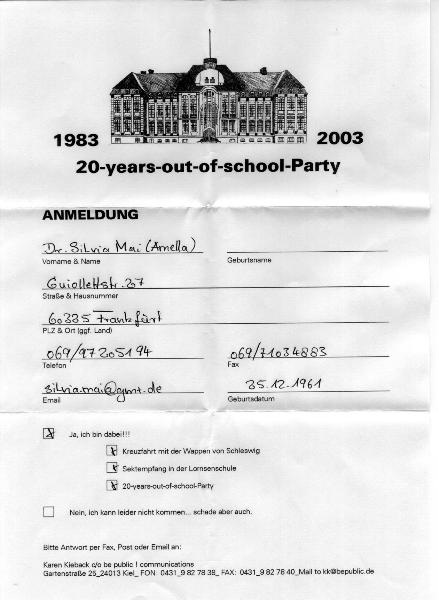 1983 2003
20-years-out-of-school-Party
ANMELDUNG
Dr. Silvia Mai (Amella)
Vorname & Name Geburtsname
Guiollettstr. 37
Straße & Hausnummer
60335 Frankfurt
PLZ & Ort (ggf. Land)
069/97205194 069/71034883
Telefon Fax
silvia.mai@gmx.de 25.12.1961
Email Geburtsdatum
Ja, ich bin dabei!!!
Kreuzfahrt mit der Wappen von Schleswig
Sektempfang in der Lornsenschule
20-years-out-of-school-Party
Nein, ich kann leider nicht kommen... schade aber auch.
Bitte Antwort per Fax, Post oder Email an:
Karen Kieback c/o be public ! communications
Gartenstraße 25_24013 Kiel_ FON: 0431_9 82 78 38_ FAX: 0431_9 82 78 40_Mail to kk@bepublic.de